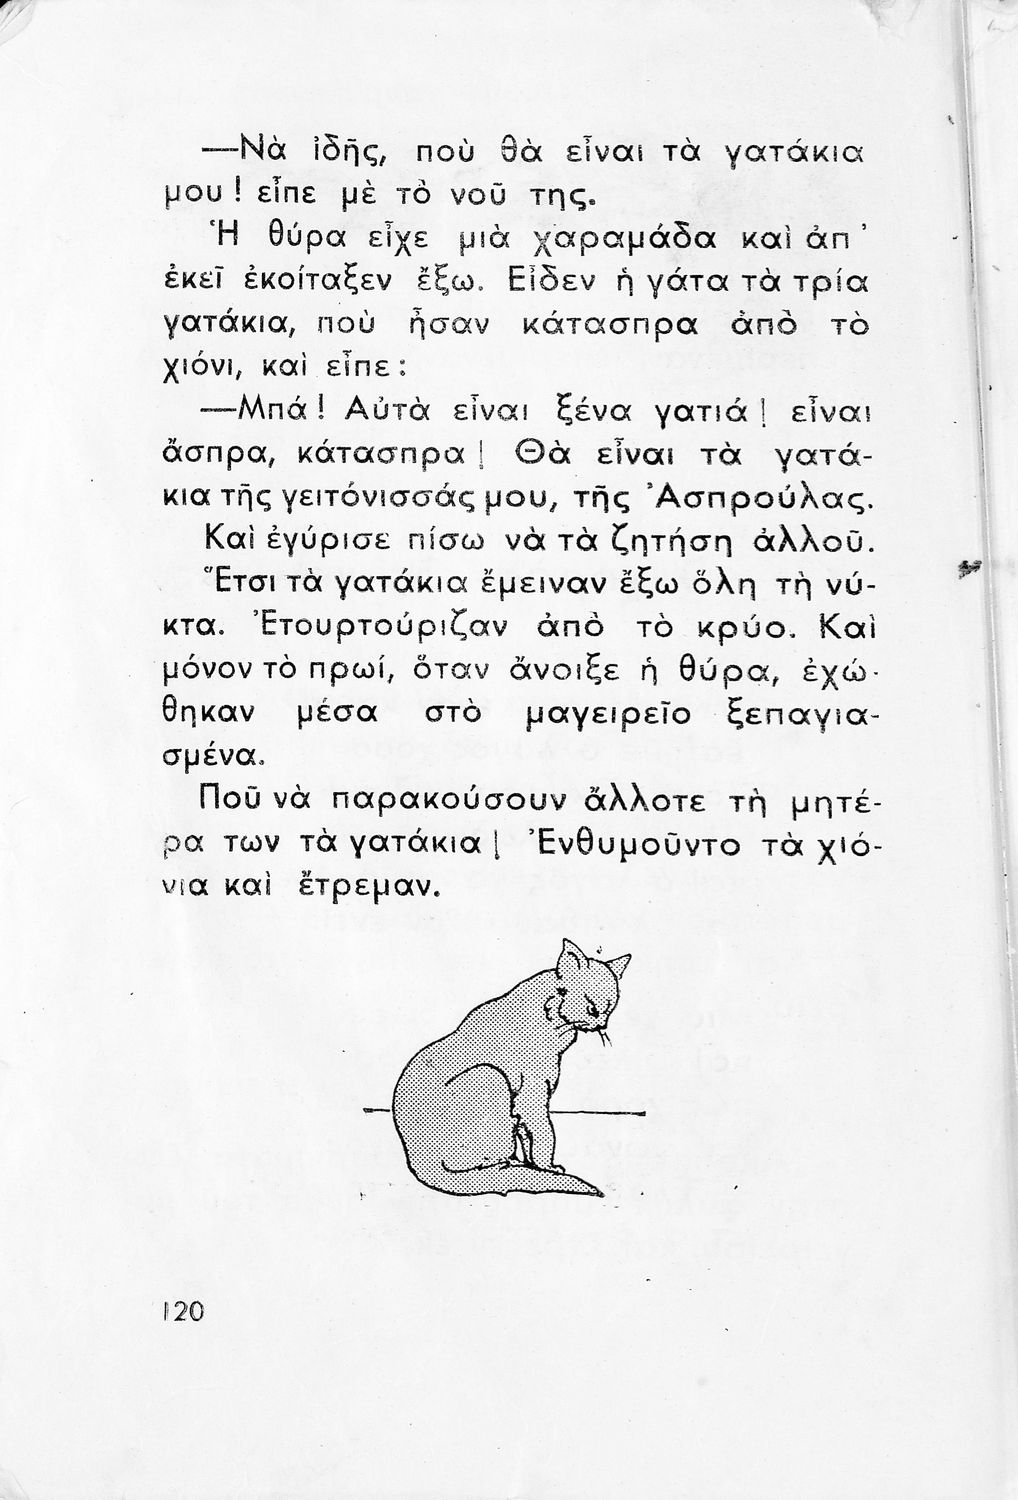 —Νὰ ἰδῆς, ποὺ θὰ εἶναι τὰ γατάκια
μου! εἶπε μὲ τὸ νοῦ της.
Ἡ θύρα εἶχε μιὰ χαραμάδα καὶ ἀπ᾿
ἐκεῖ ἐκοίταξεν ἔξω. Εἶδεν ἡ γάτα τὰ τρία
γατάκια, ποὺ ἦσαν κάτασπρα ἀπὸ τὸ
χιόνι, καὶ εἶπε:
—Μπά! Αὐτὰ εἶναι ξένα γατιά! εἶναι
ἄσπρα, κάτασπρα! Θὰ εἶναι τὰ γατά-
κια τῆς γειτόνισσάς μου, τῆς Ἀσπρούλας.
Καὶ ἐγύρισε πίσω νὰ τὰ ζητήση ἀλλοῦ.
Ἔτσι τὰ γατάκια ἔμειναν ἔξω ὅλη τὴ νύ-
κτα. Ἐτουρτούριζαν ἀπὸ τὸ κρύο. Καὶ
μόνον τὸ πρωί, ὅταν ἄνοιξε ἡ θύρα, ἐχώ-
θηκαν μέσα στὸ μαγειρεῖο ξεπαγια-
σμένα.
Ποῦ νὰ παρακούσουν ἄλλοτε τὴ μητέ-
ρα των τὰ γατάκια! Ἐνθυμοῦντο τὰ χιό-
νια καὶ ἔτρεμαν.
120